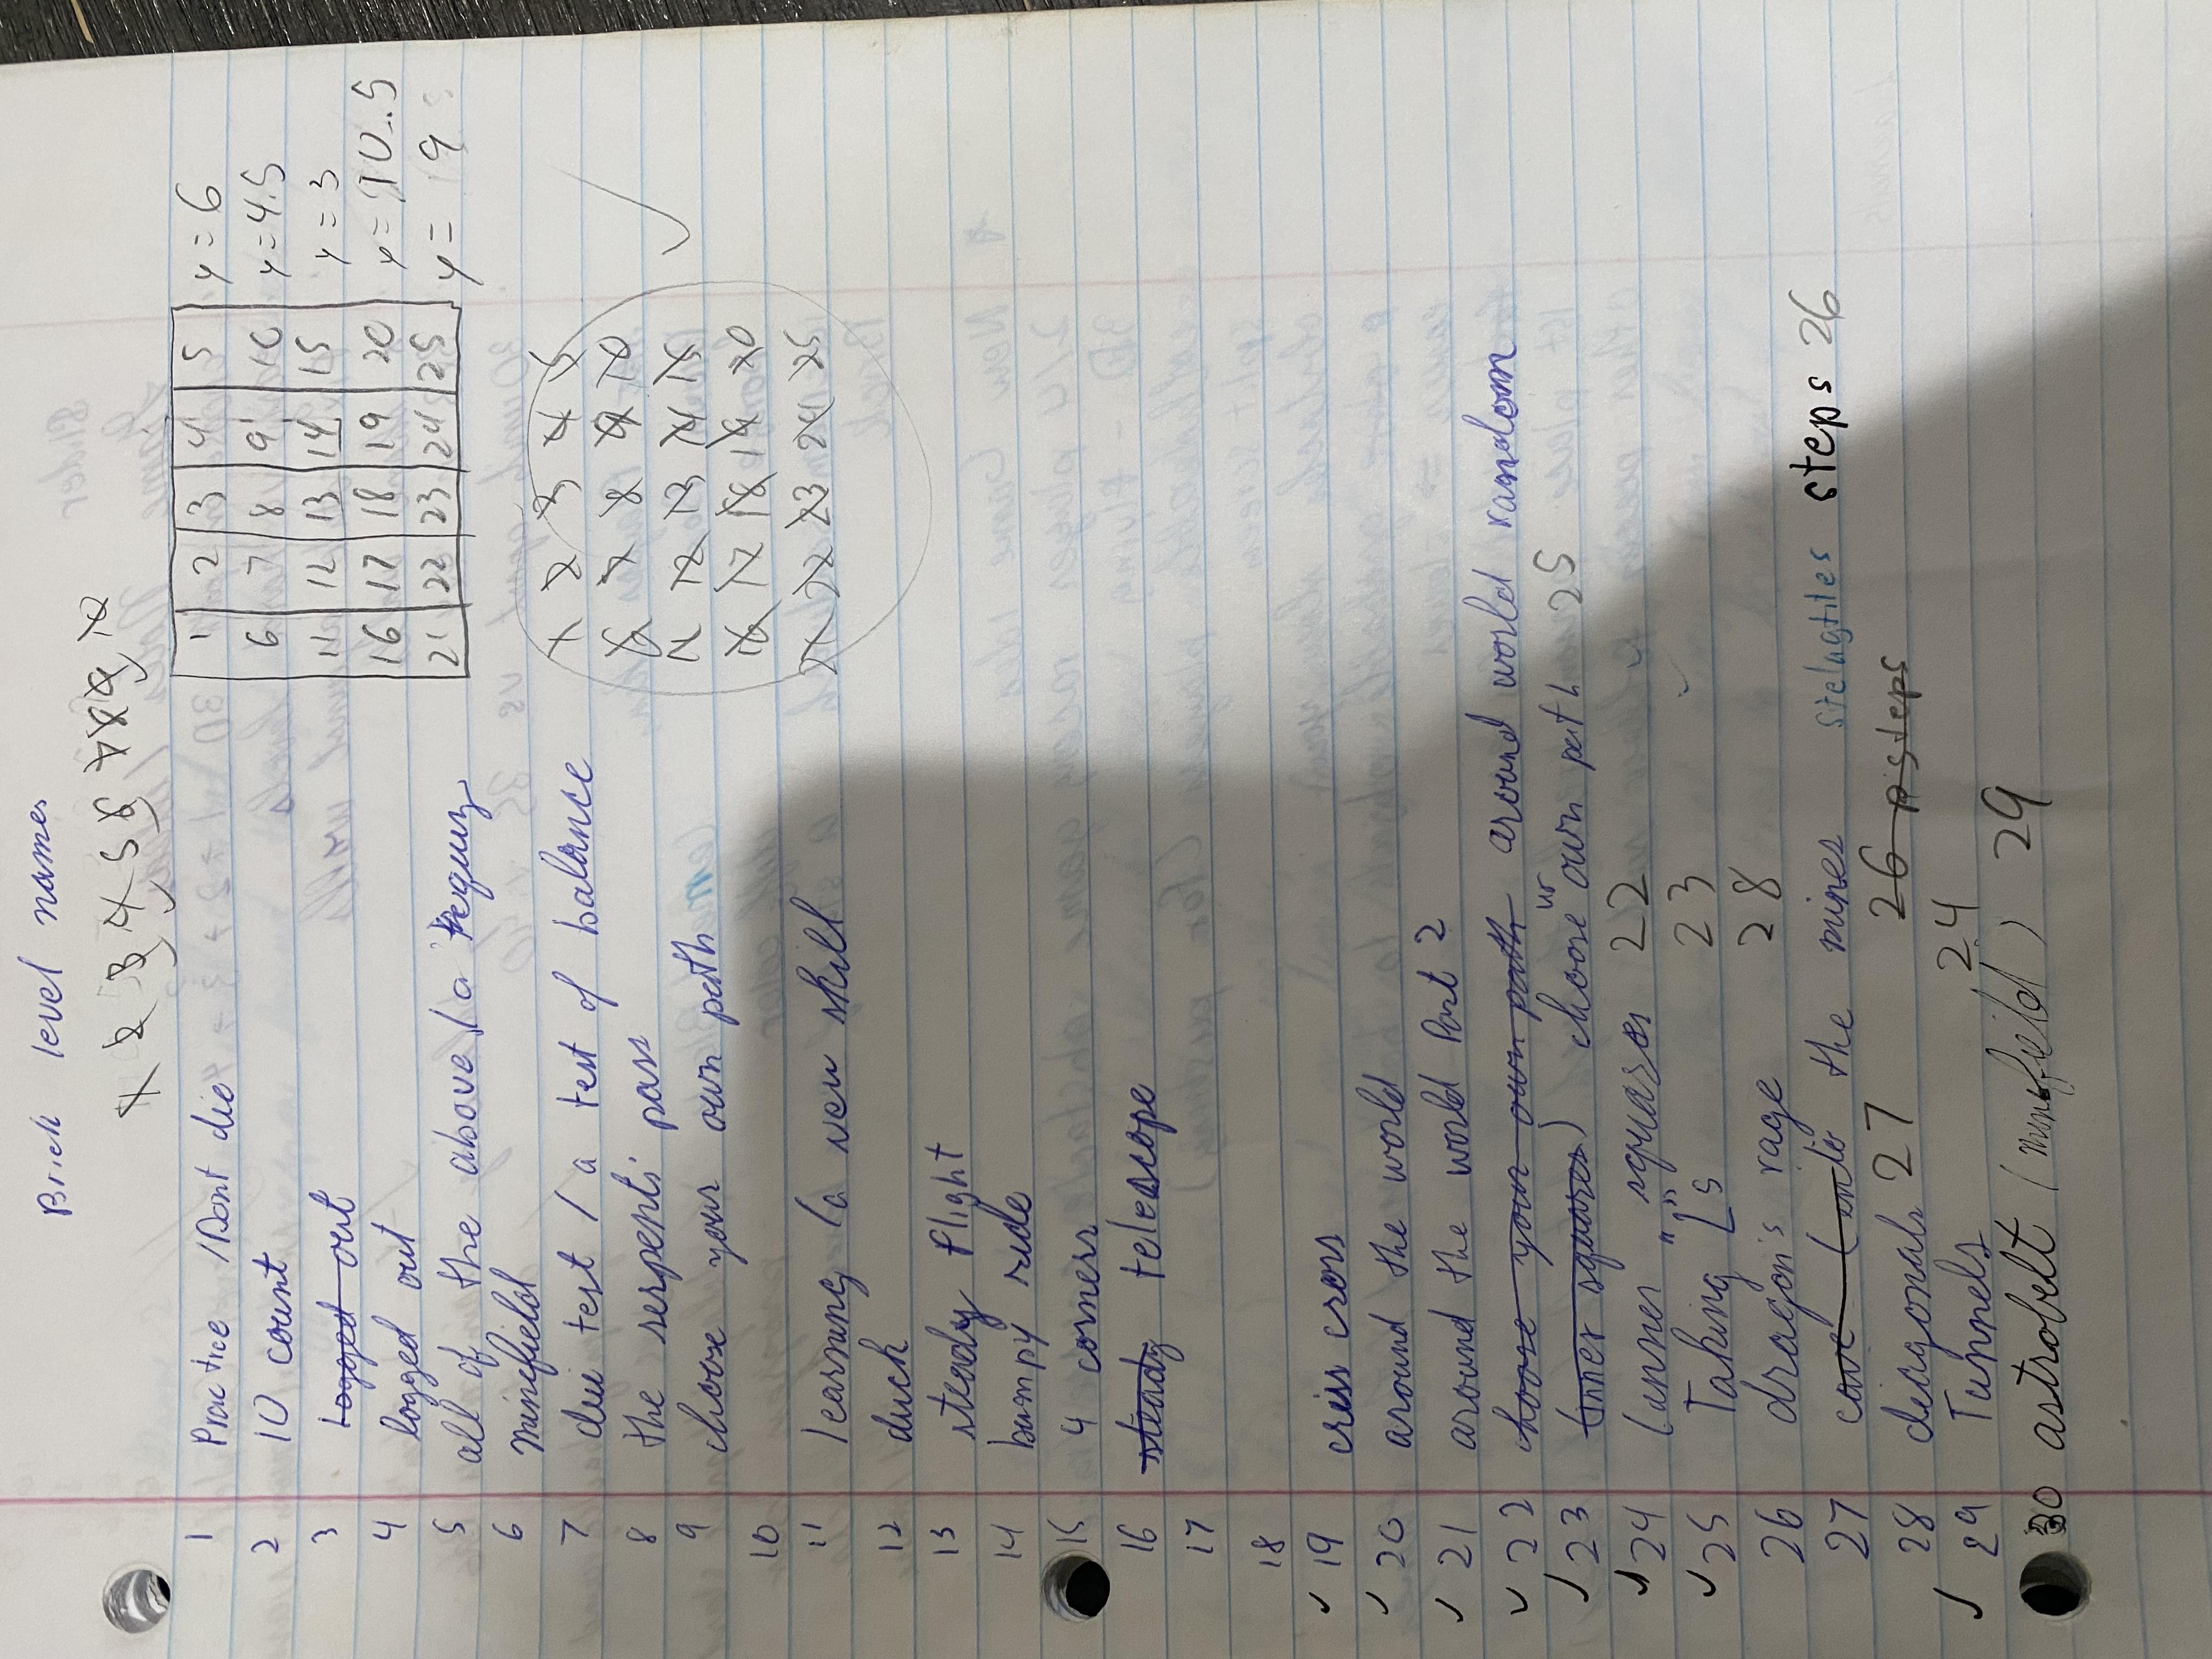 Brick level names
1 2 3 4 5 6 7 8 9 10
1 Practice / Dont die
2 10 count
3 Logged out
4 logged out
5 all of the above / a
6 minefield
7 dui test / a test of balance
8 the serpents pass
9 choose your own path
10
11 learning / a new skill
12 duck
13 steady flight
14 bumpy ride
15 4 corners
16 steady telescope
17
18
19 criss cross
20 around the world
21 around the world Part 2
22 choose your own path around world random
23 (inner squares) choose ur own path 25
24 (inner squares 22
25 Taking "L"s 23
26 dragon's rage 28
27 cave (into the mines stelagtites steps 26
28 diagonals 27 26 psteps
29 Tunnels 24
30 astrobelt (minefield) 29
1 2 3 4 5 y = 6
6 7 8 9 10 y = 4.5
11 12 13 14 15 y = 3
16 17 18 19 20 y = 10.5
21 22 23 24 25 y = 9
1 2 3 4 5
6 7 8 9 10
11 12 13 14 15
16 17 18 19 20
21 22 23 24 25